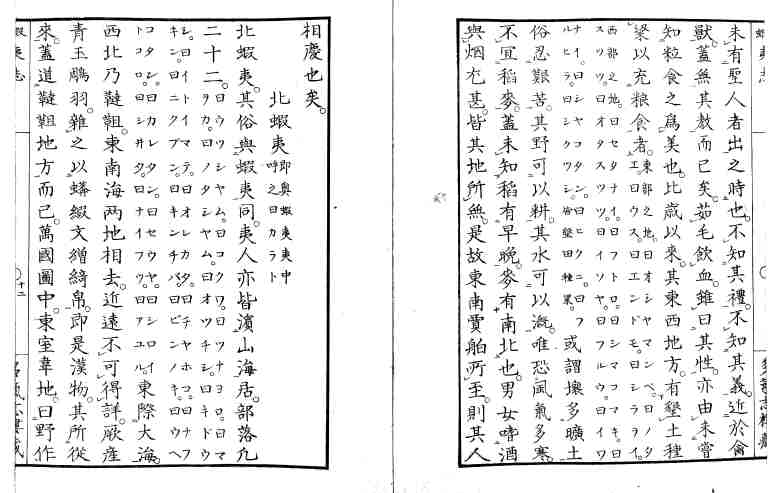 未有聖人者出之時也。不知其禮。不知其義。近於禽
獸。蓋無其教而已矣。茹毛飲血。雖曰其性。亦由未嘗
知粒食之為美也。比歲以來。其東西地方。有墾土種
粱以充粮食者。東部之地。曰オシヤマンベ。曰ノタ
エ。曰ウス。曰エンドモ。曰シラヲイ。
西部之地。曰セタナイ。曰フトロ。曰シマコマキ。曰
スツツ。曰オタスツツ。曰イソヤ。曰フルウ。曰イワ
ナイ。曰シヤコタン。曰ヒクニ。曰フ
ルヒラ。曰シクツシ。皆墾田種粟。或謂壤多曠土
俗忍艱苦。其野可以耕。其水可以漑。唯恐風氣多寒。
不宜稻麥。蓋未知稻有早晚。麥有南北也。男女嗜酒
與烟尤甚。皆其地所無。是故東南賣舶所至。則其人
相慶也矣。
北蝦夷 即奥蝦夷夷中
呼之曰カラト
北蝦夷。其俗與蝦夷同。夷人亦皆濱山海居。部落凡
二十二。曰ウツシヤム。曰コクワ。曰ツナヨロ。曰マ
ヲカ。曰ノタシヤム。曰オツチシ。曰キドウ
シ。曰イトイマテ。曰オレカタ。曰チヤホコ。曰ナフ
キン。曰ニクブン。曰キンチバク。曰ビンノキ。曰ウヘ
コタン。曰カレタン。曰セウヤ。曰シロイ
トコロ。曰シ井タ。曰ナイフツ。曰アユル。東際大海。
西北乃韃靼東南海。兩地相去。近遠不可得詳。厥產
青玉鵰羽。雜之以蟒緞文繒綺帛。即是漢物。其所從
來。蓋道韃靼地方而已。萬國圖中。東室韋地。曰野作